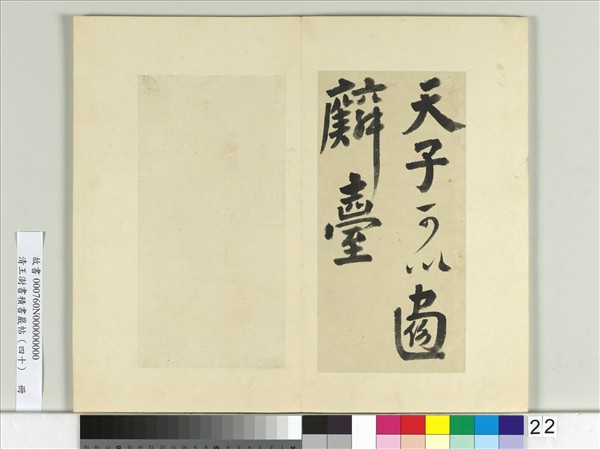 天子可以圖
麟臺
故書 000760N000000000
清王澍書積書巖帖（四十） 冊
22